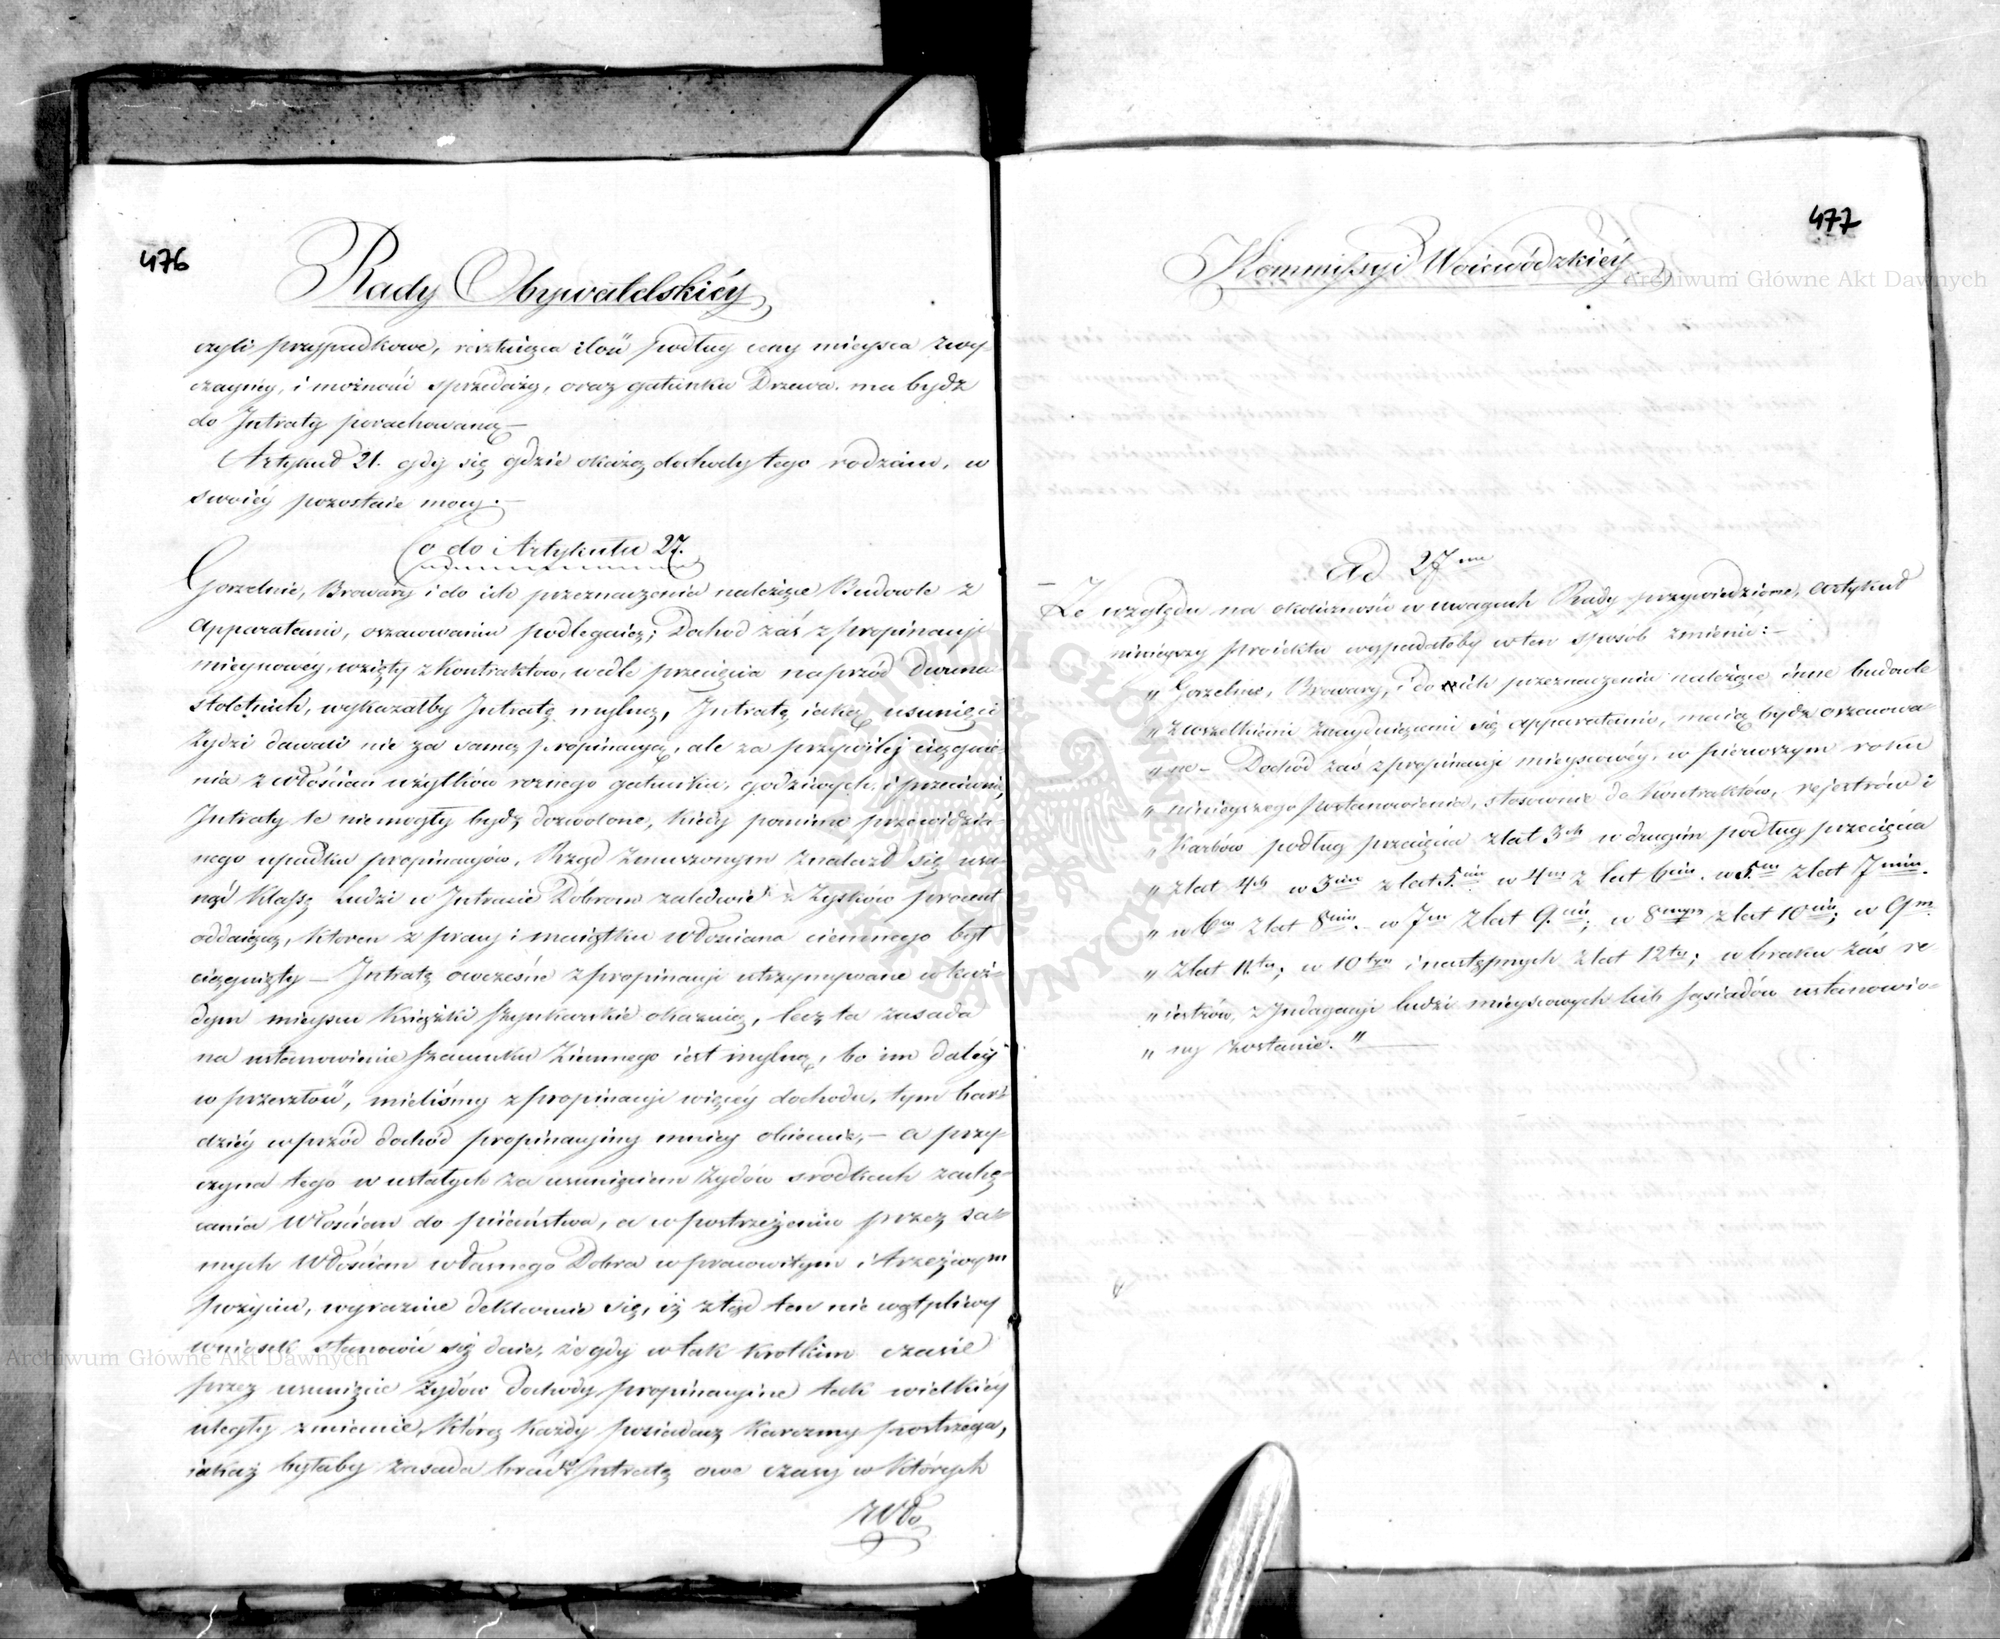 476
Rady Obywatelskiéy
czyli przypadkowe, resztuiąca ilość podług ceny mieysca zwy-
czayney, i możności sprzedaży, oraz gatunku Drzewa. ma bydź
do Intraty porachowaną –
Artykuł 21. gdy się gdzie okażą dochody tego rodzaiu, w
swoiéy pozostaie mocy. –
Co do Artykułu 27.
Gorzelnie, Browary i do ich przeznaczenia należące Budowle z
Apparatami, oszacowaniu podlegaią; Dochod zaś z propinacyi
mieyscowéy, wzięty z Kontraktów, wedle przecięcia naprzód dwuna-
stoletnich, wykazałby Intratę mylną, Intratę iaką usunięci
Żydzi dawali nie za samą propinacyą, ale za przywiléj ciągnie-
nia z włościan użytków roznego gatunku, godziwych, i przeciwnie,
Intraty te niemogły bydź dozwolone, kiedy pomimo przewidzia-
nego upadku propinacyów, Rząd zmuszonym znalazł się usu-
nąć klassę Ludzi w Intracie Dobrom zaledwie z Zysków procent
oddaiącą, ktoren z pracy i maiątku Włościana ciemnego był
ciągnięty – Intratę owczesne z propinacyi utrzymywane w każ-
dym mieyscu Książki szynkarskie okazuią, lecz ta zasada
na ustanowienie szacunku Ziemnego iest mylną, bo im daléy
w przeszłość, mieliśmy z propinacyi więcéy dochodu, tym bar-
dziéy wprzód dochód propinacyiny mniey obiecuie, – a przy-
czyna tego w ustałych za usunięciem Żydów srodkach zachę-
cania Włościan do piiaństwa, a w postrzeżeniu przez sa-
mych Włościan własnego Dobra w pracowitym i trzeźwym
pożyciu, wyraźnie deklaruie się, iż ztąd ten nie wątpliwy
wniosek stanowić się daie, że gdy w tak krotkim czasie
przez usunięcie Żydów dochody propinacyine tak wielkiéy
uległy zmianie, którą każdy posiadacz Karczmy postrzega,
iakąż byłaby zasada brać Intratę owe czasy w których
Wło
477
Kommissyi Woiewódzkiéy
Ad 27me
– Ze względu na okoliczności w uwagach Rady przywiedzione, Artykuł
ninieyszy Proiektu wypadałoby w ten sposób zmienić: –
„ Gorzelnie, Browary, i do ich przeznaczenia należące inne budowle
„ z wszelkiemi znayduiącemi się apparatami, maią bydź oszacowa-
„ ne – Dochód zaś z propinacyi mieyscowéy, w pierwszym roku
„ ninieyszego postanowienia, stosownie do Kontraktów, rejestrów i
„ Karbów podług przecięcia z lat 3ch w drugim podług przecięcia
„ z lat 4ch w 3cim z lat 5ciu w 4m z lat 6ciu. w 5m z lat 7miu.
„ w 6m z lat 8miu. w 7m z lat 9.ciu; w 8mym z lat 10ciu; w 9m.
„ z lat 11.tu; w 10tym i następnych z lat 12tu; w braku zaś re-
„ iestrów, z Indagacyi ludzi mieyscowych lub sąsiadów ustanowio-
„ ny zostanie. "
Archiwum Główne Akt Dawnych
Archiwum Główne Akt Dawnych